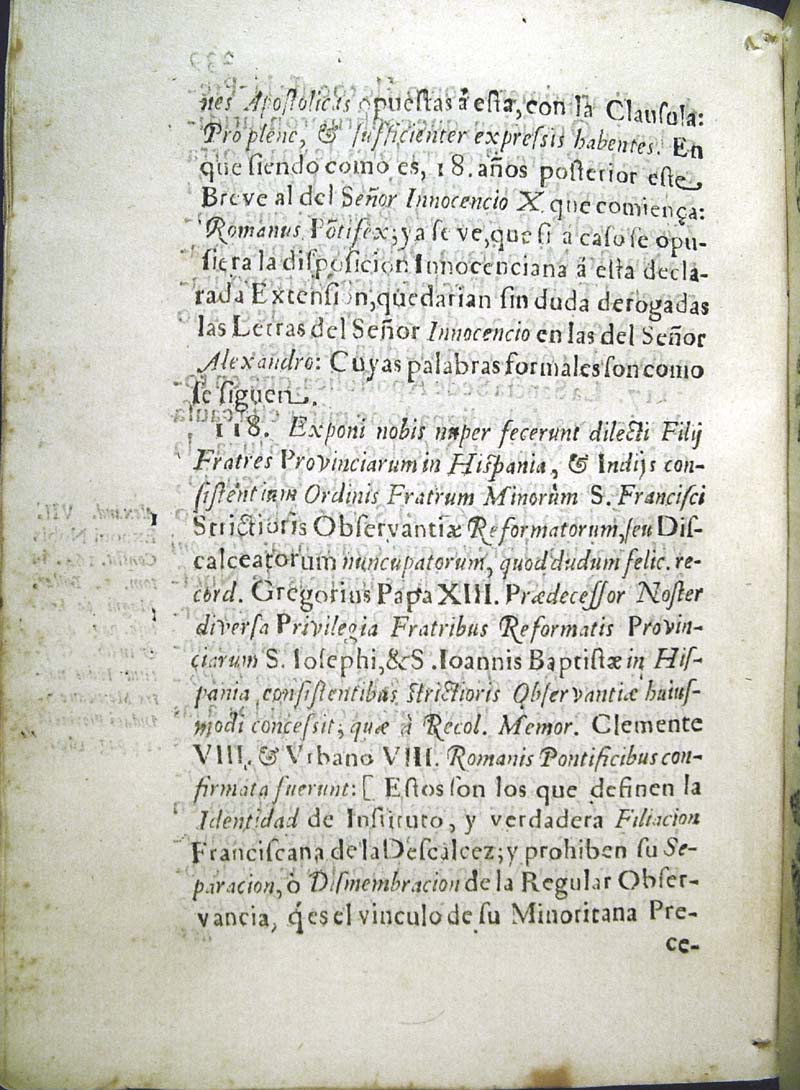 nes Apoſtolicas opueſtas â eſta, con la Clauſula:
Pro plenè, & ſufficienter expreſsis habentes. En
que ſiendo como es, 18. años poſterior eſte
Breve al del Señor Innocencio X. que comiença:
Romanus Põtifex; ya ſe ve, que ſi a caſo ſe opu-
ſiera la diſpoſicion Innocenciana â eſta decla-
rada Extenſion, quedarian ſin duda derogadas
las Letras del Señor Innocencio en las del Señor
Alexandro: Cuyas palabras formales ſon como
ſe ſiguen.
118. Exponi nobis nuper fecerunt dilecti Filij
Fratres Provinciarum in Hiſpania, & Indijs con-
ſiſtentium Ordinis Fratrum Minorum S. Franciſci
Strictioris Obſervantiæ Reformatorum, ſeu Diſ-
calceatorum nuncupatorum, quod dudum felic. re-
cord. Gregorius Papa XIII. Prædeceſſor Noſter
diverſa Privilegia Fratribus Reformatis Provin-
ciarum S. Ioſephi, & S. Ioannis Baptiſtæ in Hiſ-
pania, conſiſtentibus ſtrictioris Obſervantiæ huiuſ-
modi conceſsit, quæ à Recol. Memor. Clemente
VIII. & Vrbano VIII. Romanis Pontificibus con-
firmata fuerunt: [ Eſtos ſon los que definen la
Identidad de Inſtituto, y verdadera Filiacion
Franciſcana de la Deſcalcez; y prohiben ſu Se-
paracion, ò Diſmembracion de la Regular Obſer-
vancia, q́ es el vinculo de ſu Minoritana Pre-
ce-